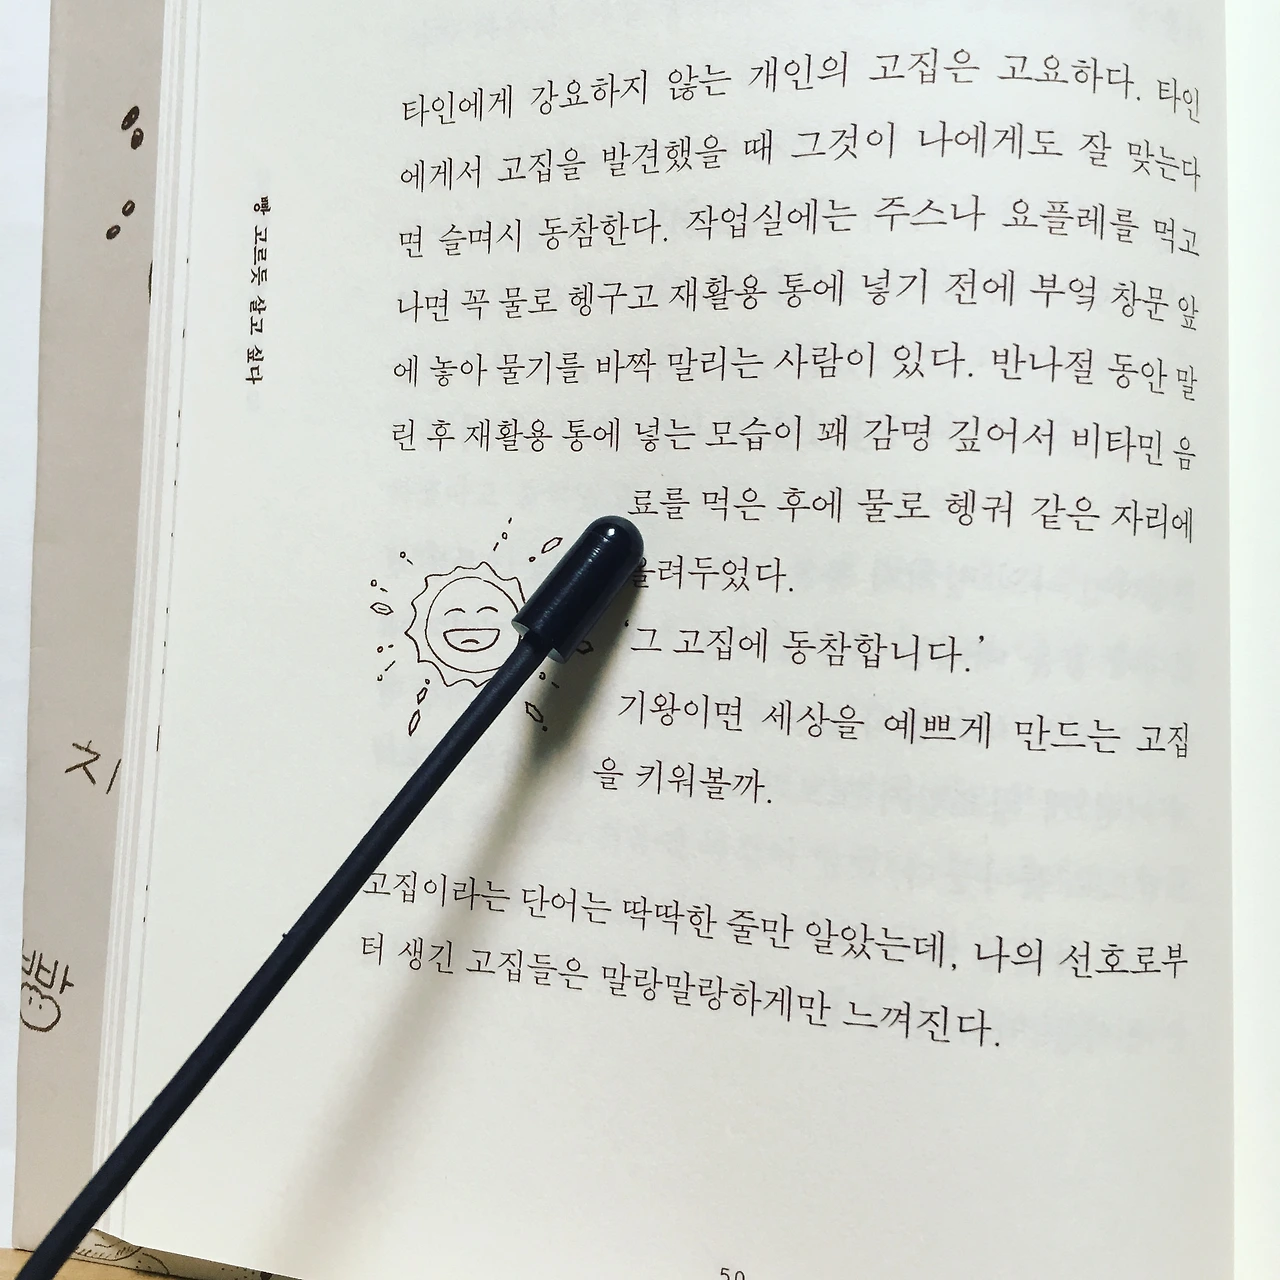 타인에게 강요하지 않는 개인의 고집은 고요하다. 타인
에게서 고집을 발견했을 때 그것이 나에게도 잘 맞는다
면 슬며시 동참한다. 작업실에는 주스나 요플레를 먹고
나면 꼭 물로 헹구고 재활용 통에 넣기 전에 부엌 창문 앞
에 놓아 물기를 바짝 말리는 사람이 있다. 반나절 동안 말
린 후 재활용 통에 넣는 모습이 꽤 감명 깊어서 비타민 음
료를 먹은 후에 물로 헹궈 같은 자리에
올려두었다.
‘그 고집에 동참합니다.’
기왕이면 세상을 예쁘게 만드는 고집
을 키워볼까.
고집이라는 단어는 딱딱한 줄만 알았는데, 나의 선호로부
터 생긴 고집들은 말랑말랑하게만 느껴진다.
빵 고르듯 살고 싶다
50